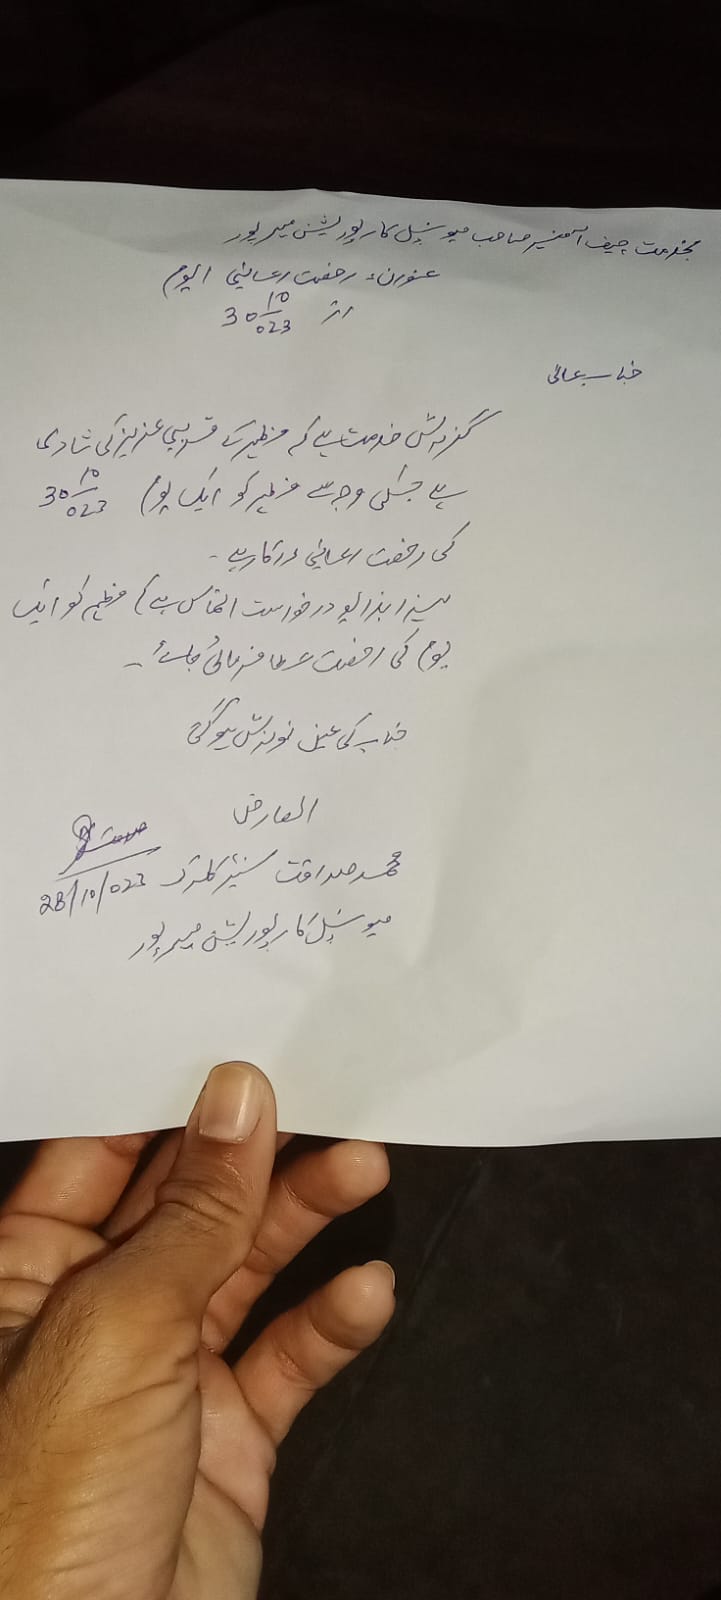 بخدمت چیف آفیسر صاحب میونسپل کارپوریشن میرپور
عنوان، رخصت رعایتی 1 یوم
از 30/10/023
جناب عالی
گزارش خدمت ہے کہ مظہر کے قریبی عزیز کی شادی
ہے جسکی وجہ سے مظہر کو ایک یوم 30/10/023
کی رخصت رعایتی درکار ہے۔
لہذا بذریعہ درخواست التماس ہے کہ مظہر کو ایک
یوم کی رخصت عطا فرمائی جائے۔
جناب کی عین نوازش ہو گی
العارض
محمد صداقت سنیئر کلرک 28/10/023
میونسپل کارپوریشن میرپور